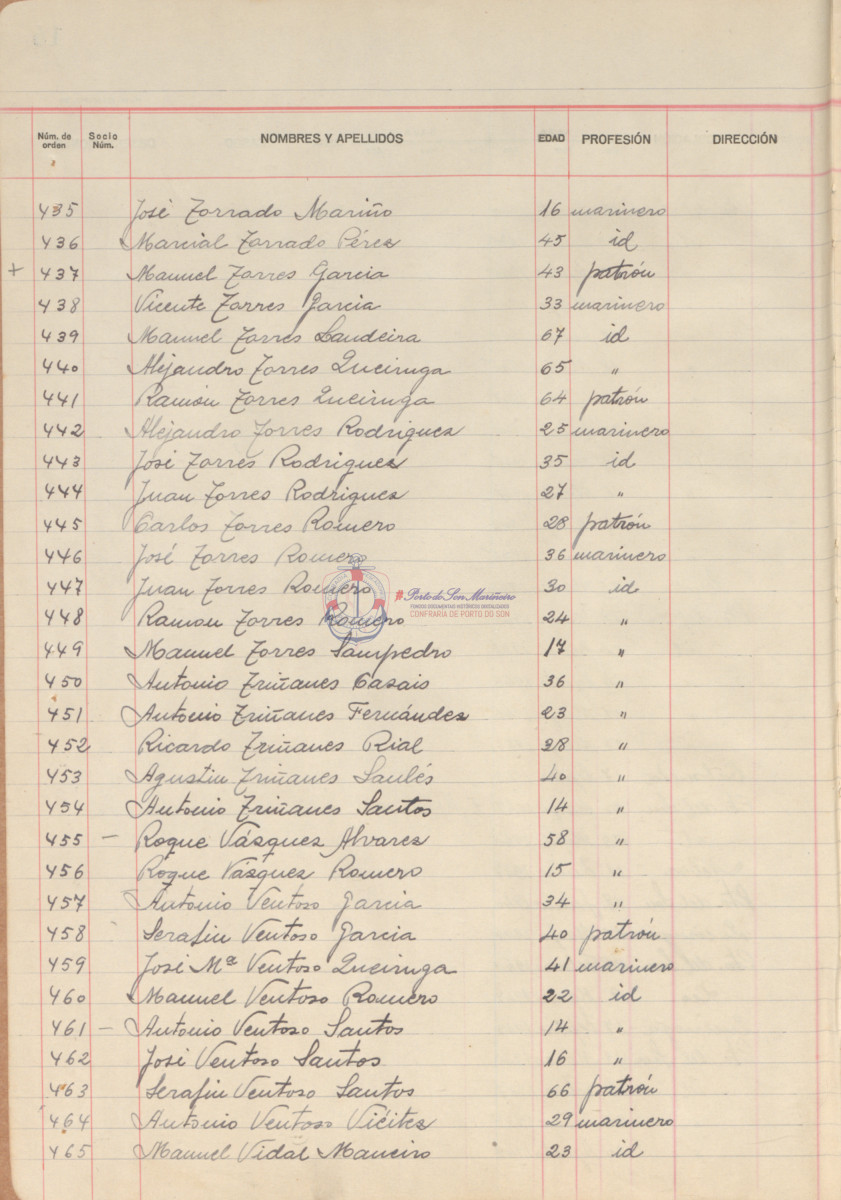 Núm. de orden Socio Núm. NOMBRES Y APELLIDOS EDAD PROFESIÓN DIRECCIÓN
435 José Torrado Mariño 16 marinero
436 Marcial Torrado Pérez 45 id
+ 437 Manuel Torres Garcia 43 patrón
438 Vicente Torres Garcia 33 marinero
439 Manuel Torres Laudeira 67 id
440 Alejandro Torres Queiruga 65 "
441 Ramón Torres Queiruga 64 patrón
442 Alejandro Torres Rodriguez 25 marinero
443 José Torres Rodriguez 35 id
444 Juan Torres Rodriguez 27 "
445 Carlos Torres Romero 28 patrón
446 José Torres Romero 36 marinero
447 Juan Torres Romero 30 id
#Porto do Son Mariñeiro
FONDOS DOCUMENTAIS HISTÓRICOS DIXITALIZADOS
CONFRARIA DE PORTO DO SON
448 Ramon Torres Romero 24 "
449 Manuel Torres Sampedro 17 "
450 Antonio Triñanes Casais 36 "
451 Antonio Triñanes Fernández 23 "
452 Ricardo Triñanes Rial 38 "
453 Agustin Triñanes Saulés 40 "
454 Antonio Triñanes Santos 14 "
455 - Roque Vásquez Alvarez 58 "
456 Roque Vásquez Romero 15 "
457 Antonio Ventoso Garcia 34 "
458 Serafin Ventoso Garcia 40 patrón
459 José Mª Ventoso Queiruga 41 marinero
460 Manuel Ventoso Romero 22 id
461 - Antonio Ventoso Santos 14 "
462 José Ventoso Santos 16 "
463 Serafin Ventoso Santos 66 patrón
464 Antonio Ventoso Viéitez 29 marinero
465 Manuel Vidal Maneiro 23 id